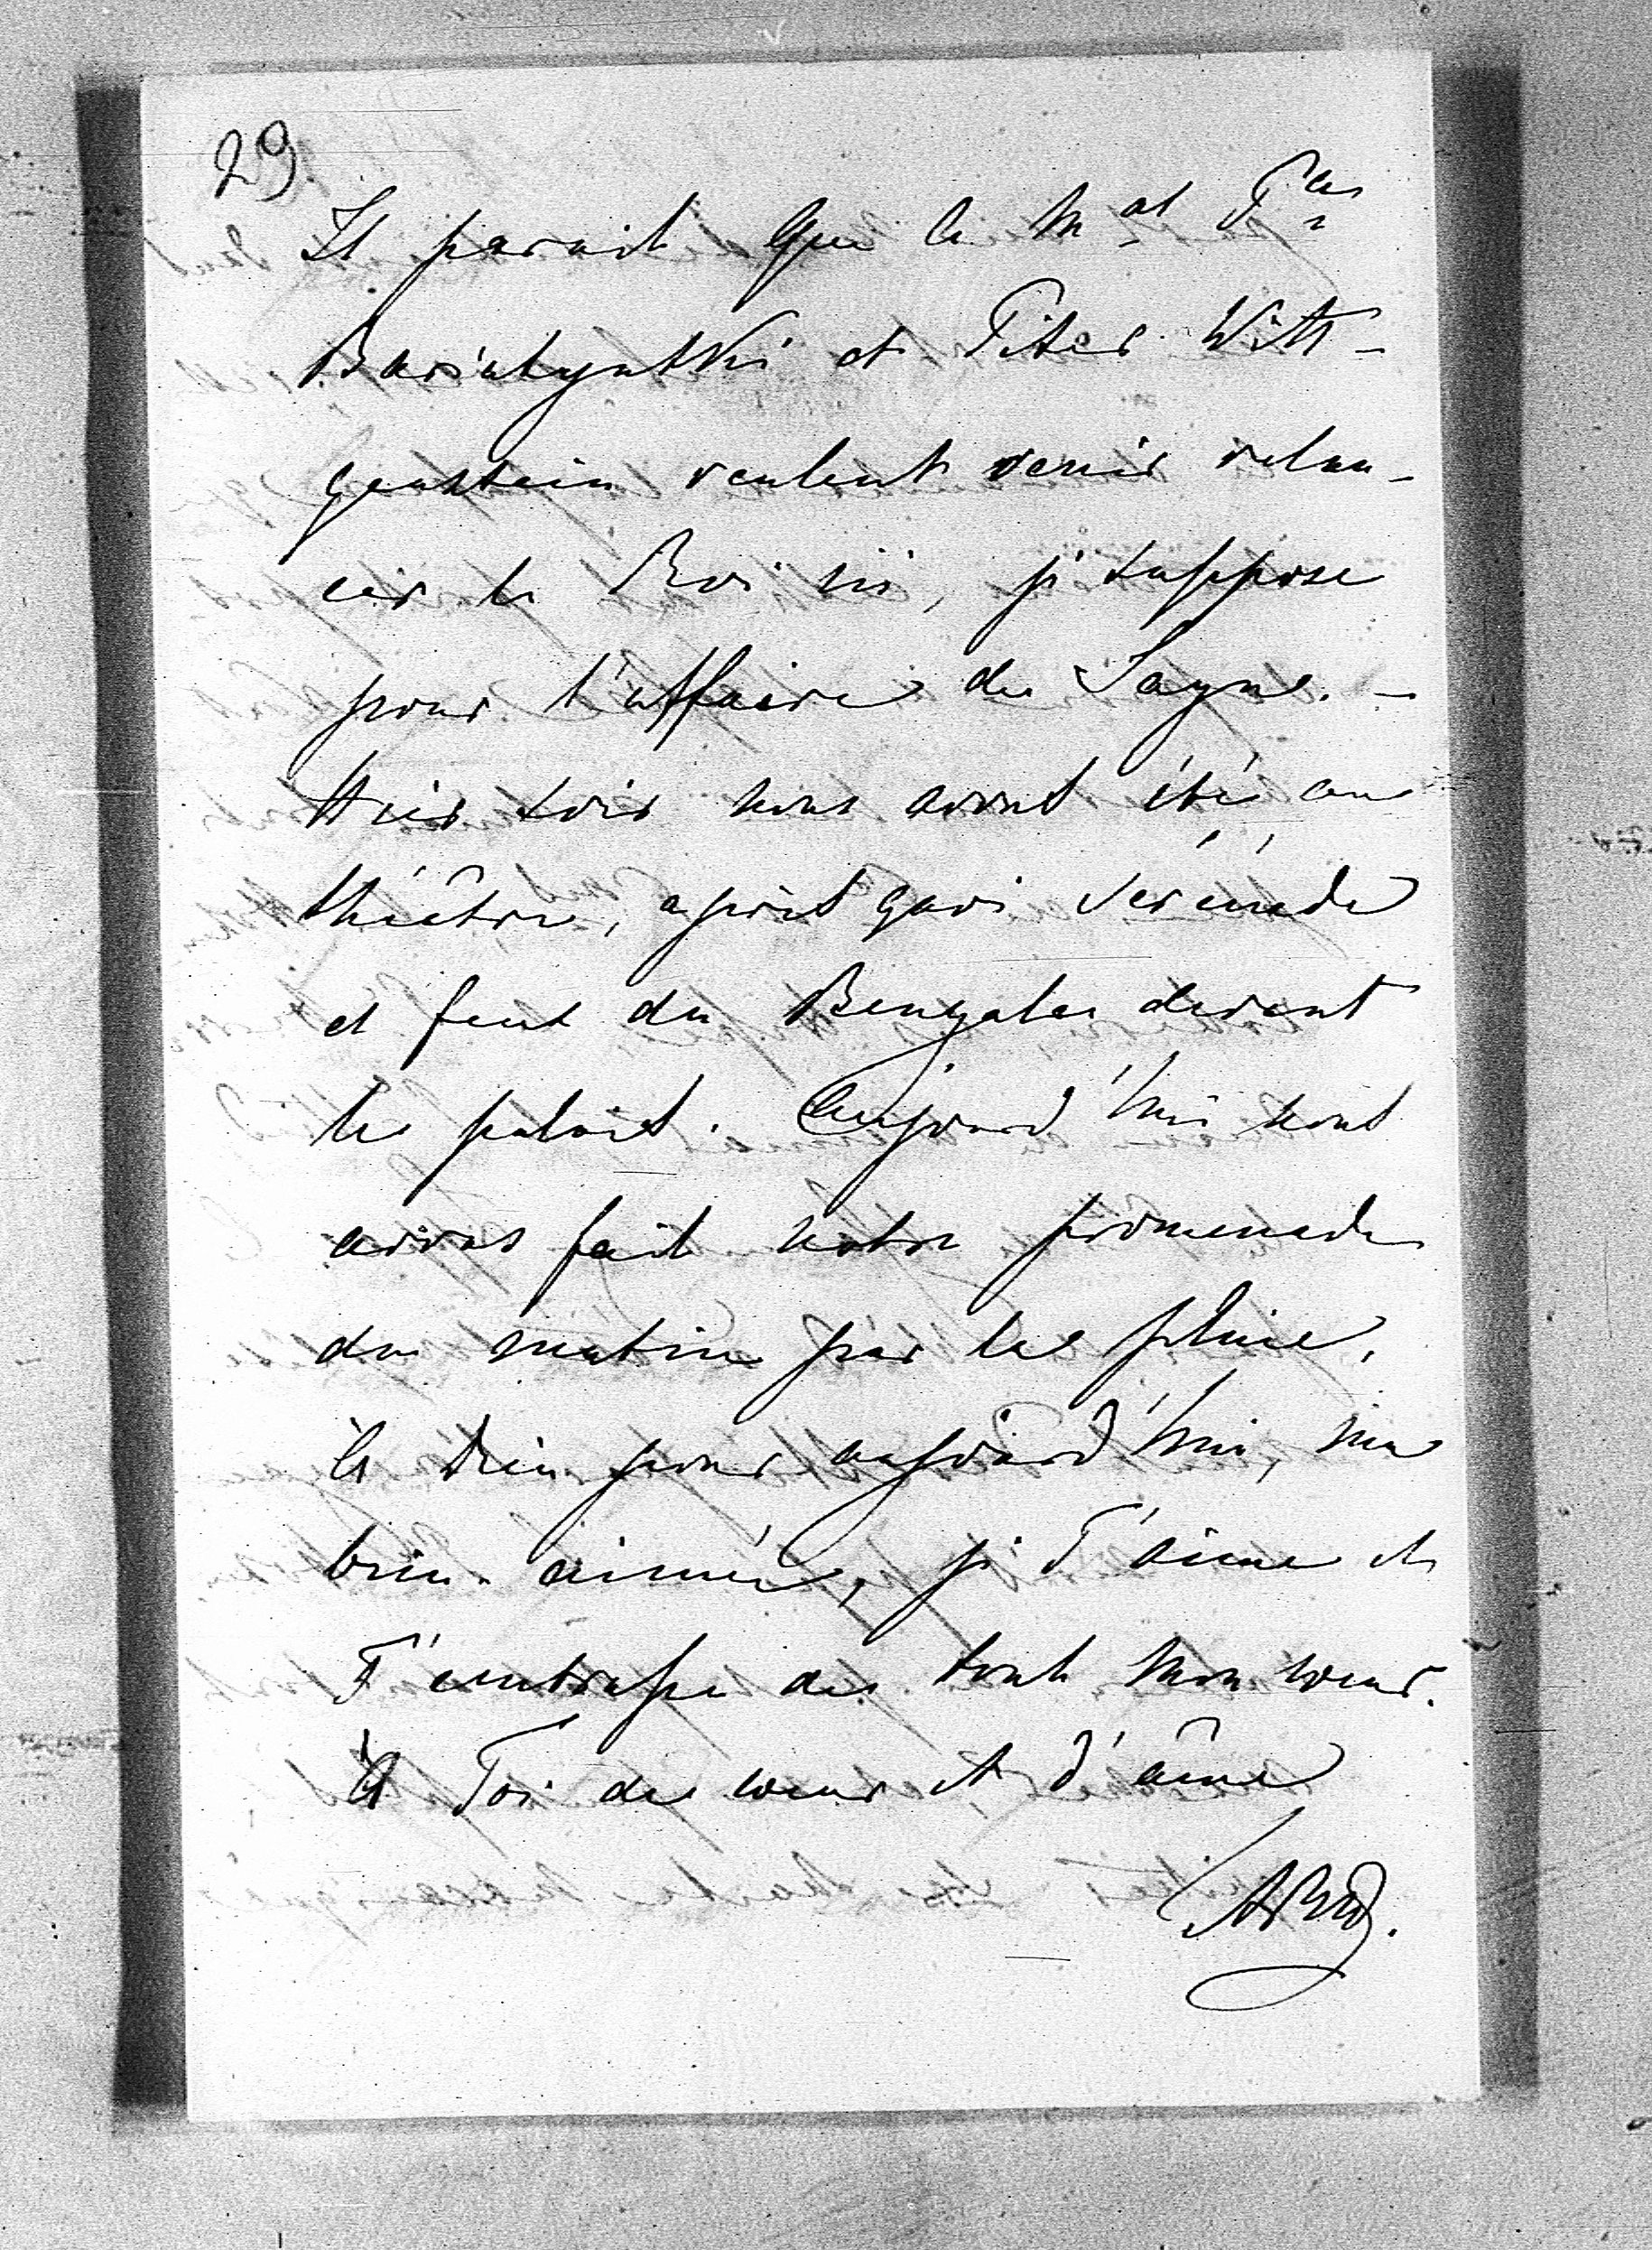 29
Il parait que le M.al P.ce
Bariatynski et Piter Witt-
genstein veulent venir relan-
cer le Roi ici, je suppose
pour l'affaire de Sayn. -
Hier soir nous avons été au
théâtre, après quoi sérénade
et feux de Bengales devant
le palais. Aujourd'hui nous
avons fait notre promenade
du matin par la pluie.
À Dieu pour aujourd'hui, ma
bien-aimée, je T'aime et
T'embrasse de tout mon cœur.
À Toi de cœur et d'âme